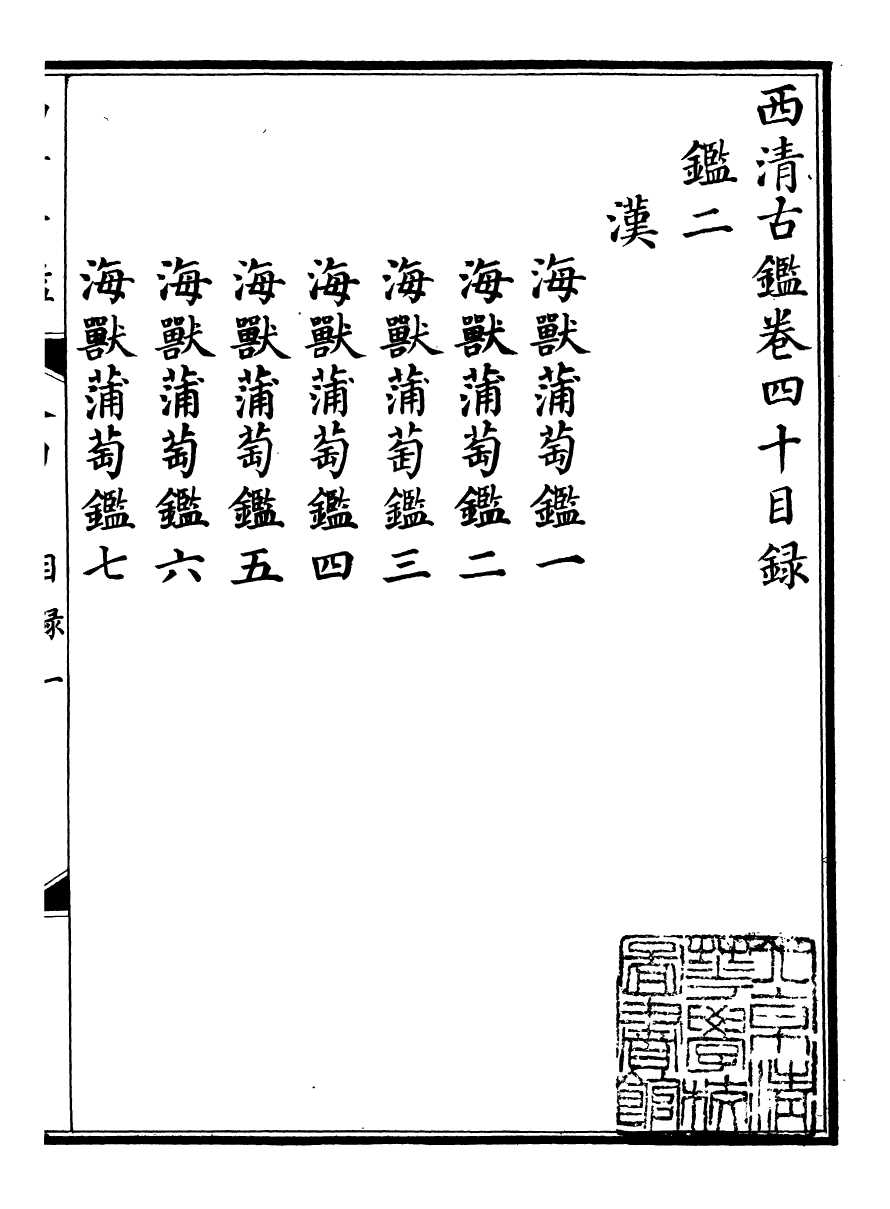 西清古鑑卷四十目録
鑑二
漢
海獸蒲萄鑑一
海獸蒲萄鑑二
海獸蒲萄鑑三
海獸蒲萄鑑四
海獸蒲萄鑑五
海獸蒲萄鑑六
海獸蒲萄鑑七
目録一